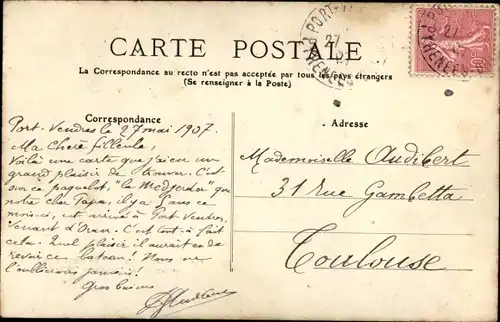 CARTE POSTALE
La Correspondance au recto n'est pas acceptée par tous les pays étrangers
(Se renseigner à la Poste)
Correspondance
Port-Vendres le 27 mai 1907.
Ma Chère filleule,
Voilà une carte que j'ai eu un
grand plaisir de trouver. C'est
sur ce paquebot, "le Medjerda" que
notre cher Papa, il y a 9 ans ce
mois-ci, est arrivé à Port-Vendres,
venant d'Oran. C'est tout à fait
cela. Quel plaisir il aurait eu de
revoir ce bateau! Nous ne
l'oublierons jamais!
Gros baisers
Adresse
Mademoiselle Audibert
31 Rue Gambetta
Toulouse
PORT-
27